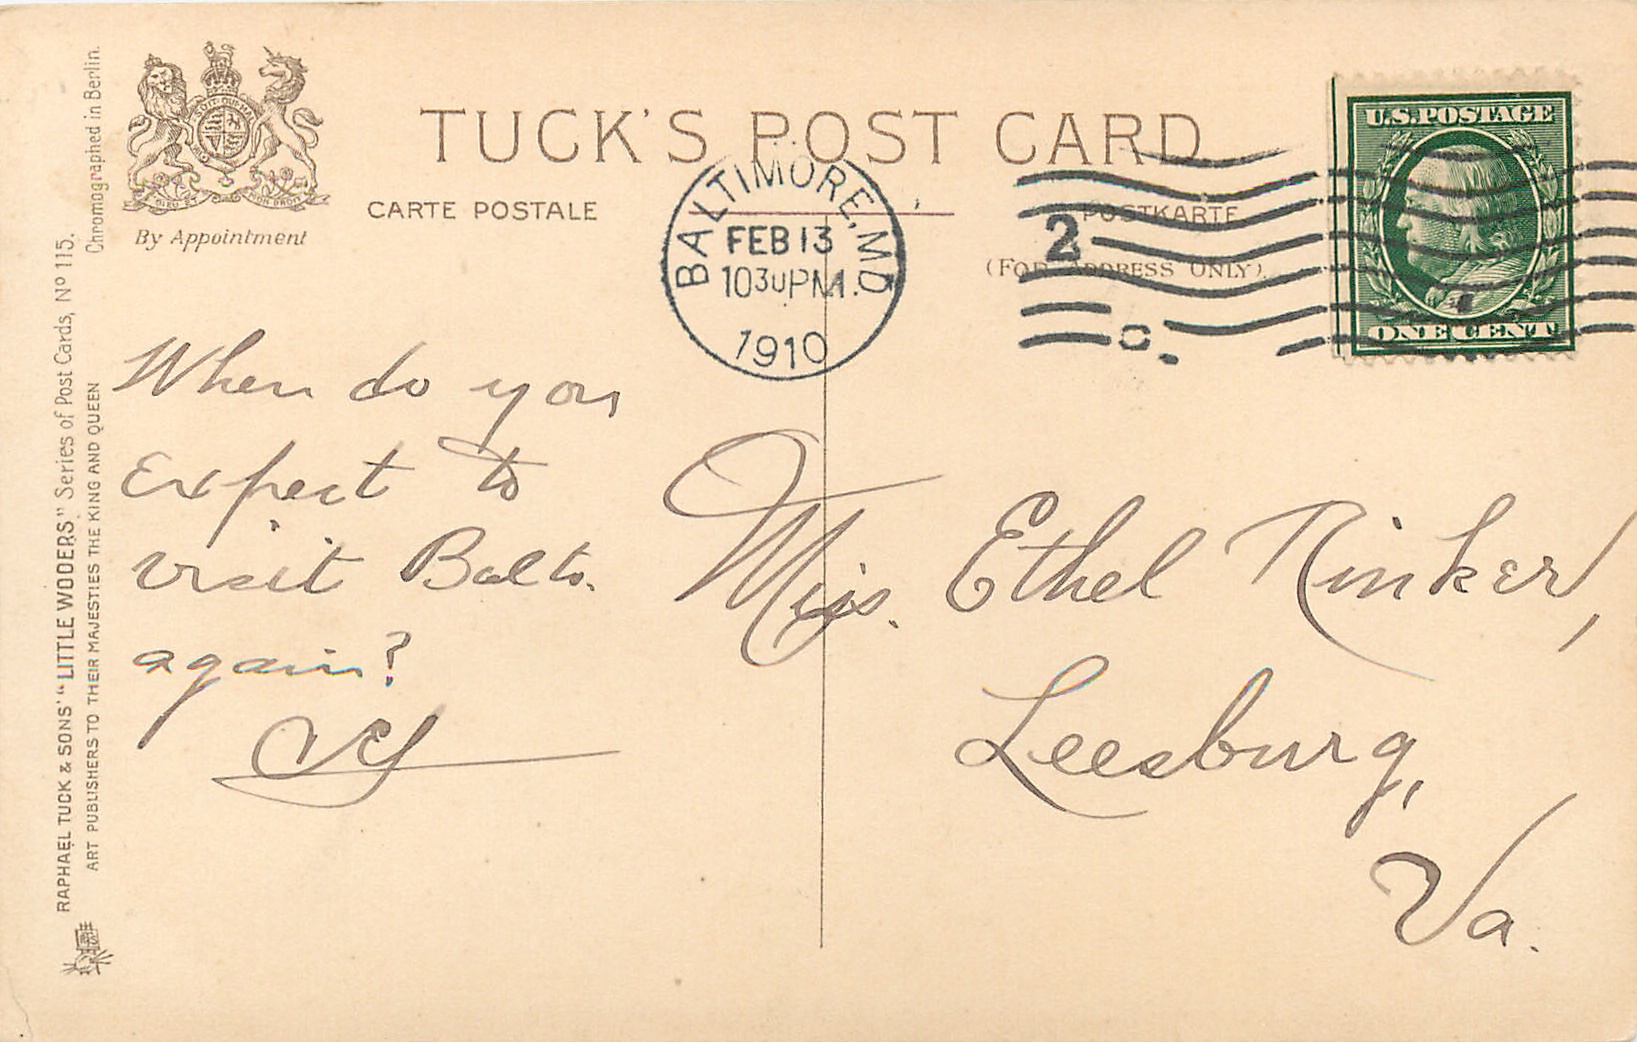 TUCK'S POST CARD
CARTE POSTALE
POSTKARTE
(FOR ADDRESS ONLY).
By Appointment
DIEU ET MON DROIT
BALTIMORE, MD.
FEB 13
1030 PM
1910
2
C.
U.S. POSTAGE
ONE CENT
When do you
Expect to
visit Balto.
again?
Miss. Ethel Rinker,
Leesburg,
Va.
RAPHAEL TUCK & SONS' "LITTLE WOOERS" Series of Post Cards, Nº 115.
ART PUBLISHERS TO THEIR MAJESTIES THE KING AND QUEEN
Chromographed in Berlin.